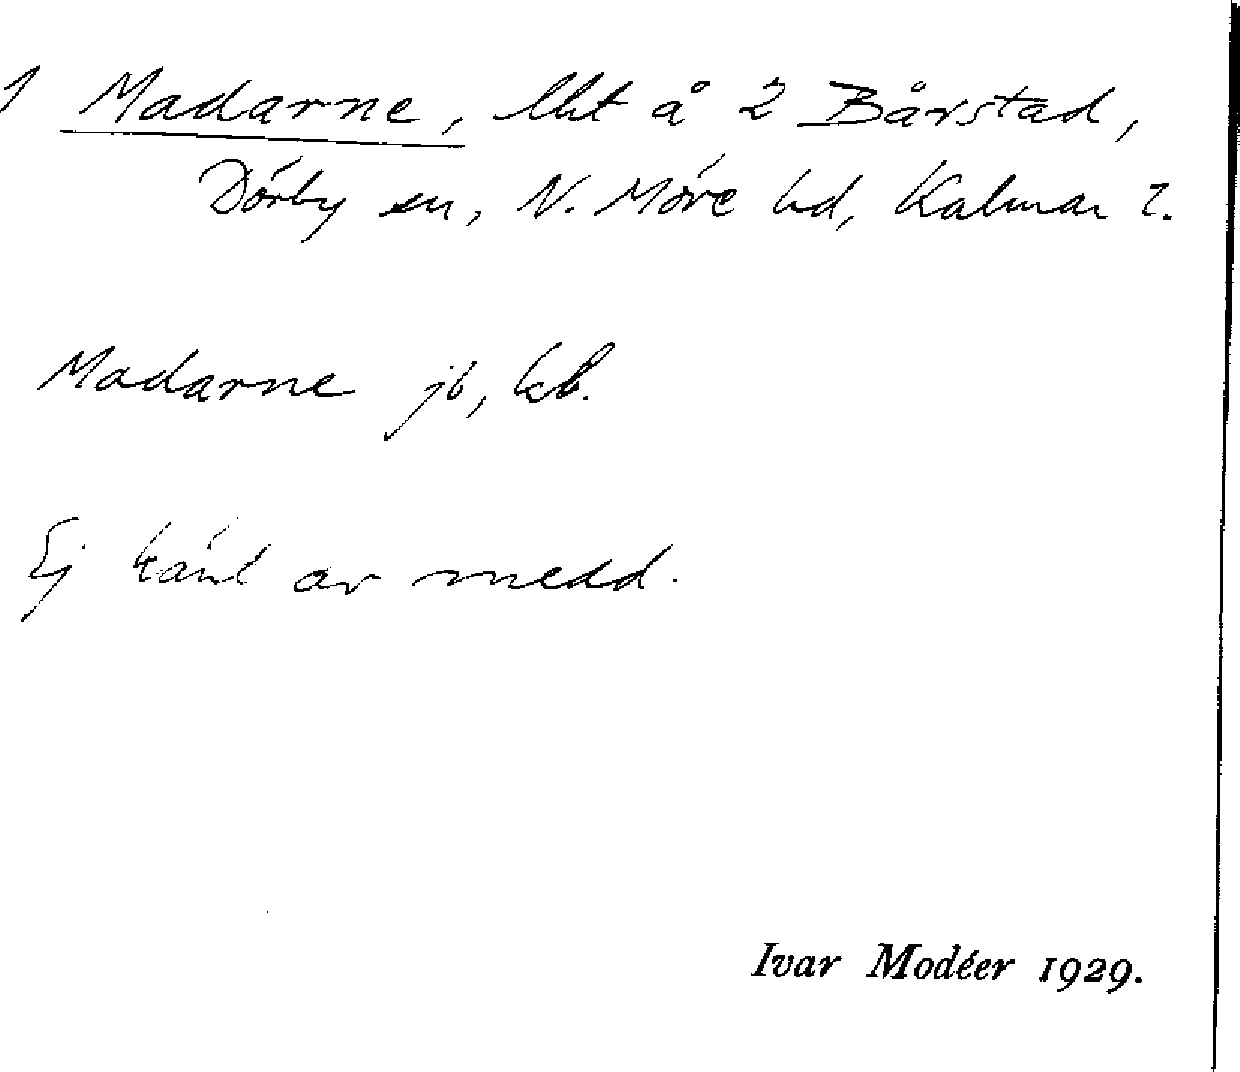 1 Madarne, lht å 2 Bårstad,
Dörby sn, N. Möre hd, Kalmar l.
Madarne jb, kb.
Ej känd av medd.
Ivar Modéer 1929.